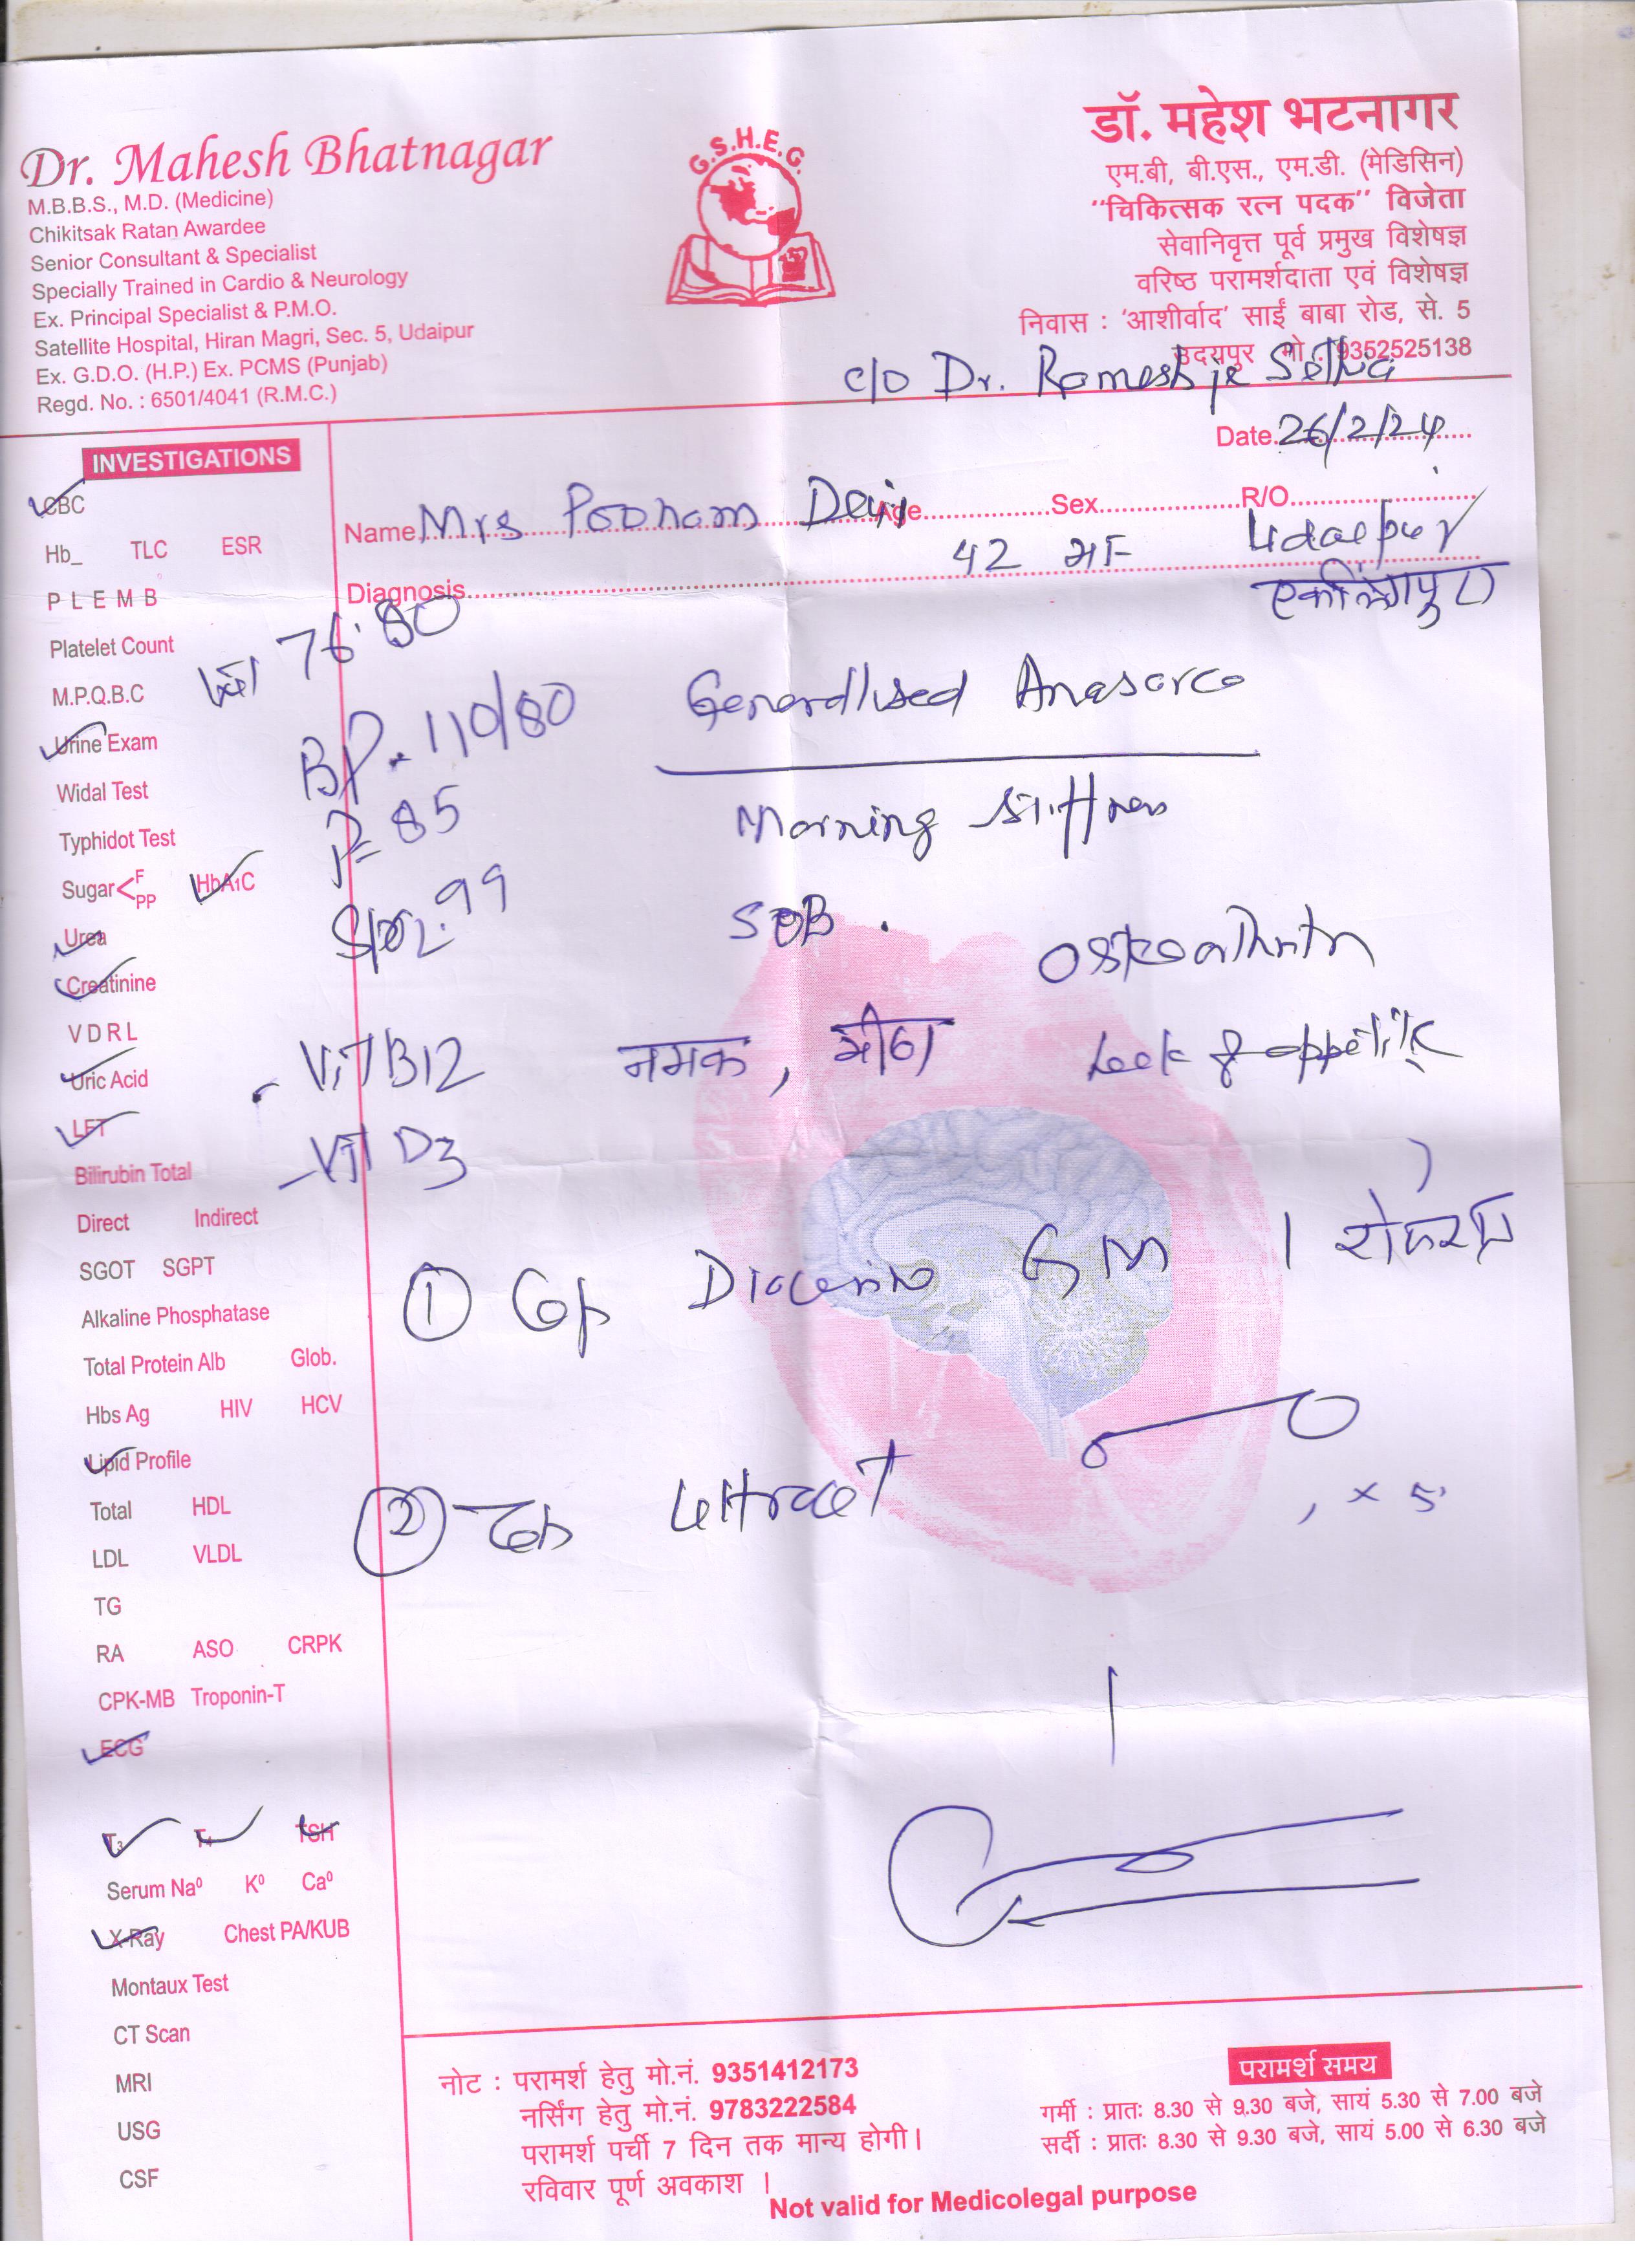 Dr. Mahesh Bhatnagar
M.B.B.S., M.D. (Medicine)
Chikitsak Ratan Awardee
Senior Consultant & Specialist
Specially Trained in Cardio & Neurology
Ex. Principal Specialist & P.M.O.
Satellite Hospital, Hiran Magri, Sec. 5, Udaipur
Ex. G.D.O. (H.P.) Ex. PCMS (Punjab)
Regd. No. : 6501/4041 (R.M.C.)
G.S.H.E.G.
डॉ. महेश भटनागर
एम.बी, बी.एस., एम.डी. (मेडिसिन)
"चिकित्सक रत्न पदक" विजेता
सेवानिवृत्त पूर्व प्रमुख विशेषज्ञ
वरिष्ठ परामर्शदाता एवं विशेषज्ञ
निवास : 'आशीर्वाद' साईं बाबा रोड, से. 5
उदयपुर मो. : 9352525138
c/o Dr. Ramesh
Date. 26/2/24
Name Mrs Poonam Devi Age Sex R/O
42 F Udaipur
Diagnosis
INVESTIGATIONS
CBC
Hb_ TLC ESR
P L E M B
Platelet Count
M.P.Q.B.C
Urine Exam
Widal Test
Typhidot Test
Sugar < F PP HbA1C
Urea
Creatinine
V D R L
Uric Acid
LFT
Bilirubin Total
Direct Indirect
SGOT SGPT
Alkaline Phosphatase
Total Protein Alb Glob.
Hbs Ag HIV HCV
Lipid Profile
Total HDL
LDL VLDL
TG
RA ASO CRPK
CPK-MB Troponin-T
ECG
T3 T4 TSH
Serum Na⁰ K⁰ Ca⁰
X-Ray Chest PA/KUB
Montaux Test
CT Scan
MRI
USG
CSF
76.80
BP. 110/80
P= 85
SPO2. 99
Vit B12
- Vit D3
Generalised Anasarca
Morning Stiffness
SOB .
Osteoarthritis
नमक, मीठा
Lack of appetite
① Cap GM 1
② Tab Ultracet
x 5
नोट : परामर्श हेतु मो.नं. 9351412173
नर्सिंग हेतु मो.नं. 9783222584
परामर्श पर्ची 7 दिन तक मान्य होगी।
रविवार पूर्ण अवकाश ।
परामर्श समय
गर्मी : प्रातः 8.30 से 9.30 बजे, सायं 5.30 से 7.00 बजे
सर्दी : प्रातः 8.30 से 9.30 बजे, सायं 5.00 से 6.30 बजे
Not valid for Medicolegal purpose